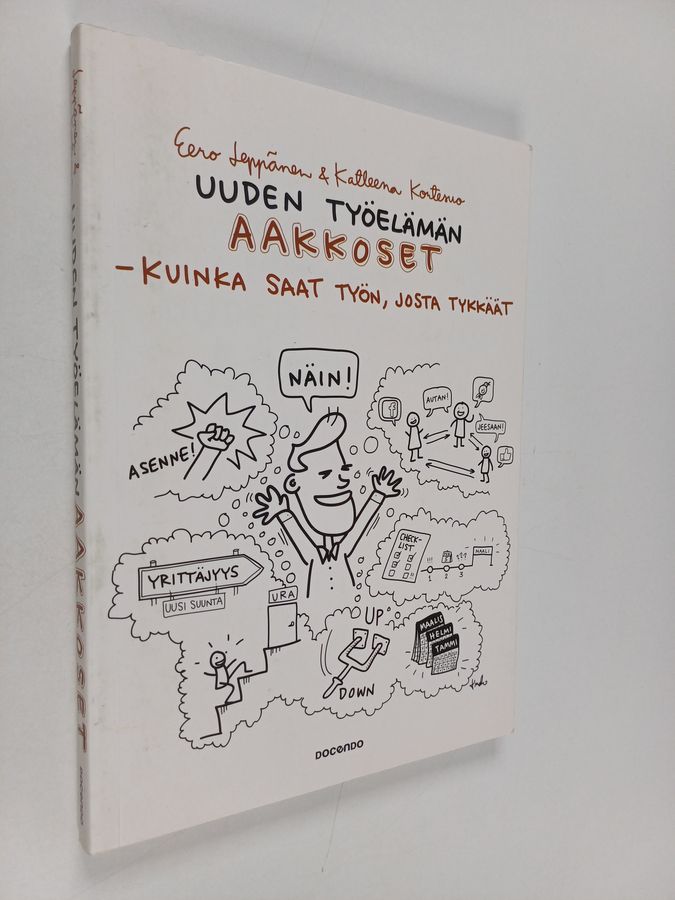 Eero Leppänen & Katleena Kortesuo
UUDEN TYÖELÄMÄN
AAKKOSET
–KUINKA SAAT TYÖN, JOSTA TYKKÄÄT
NÄIN!
ASENNE!
f
AUTAN!
JEESAAN!
CHECK-
LIST
!!!
???
MAALI
1 2 3
YRITTÄJYYS
UUSI SUUNTA
URA
UP
DOWN
MAALIS
HELMI
TAMMI
DOCENDO
Leppänen &
UUDEN TYÖELÄMÄN AAKKOSET
DOCENDO